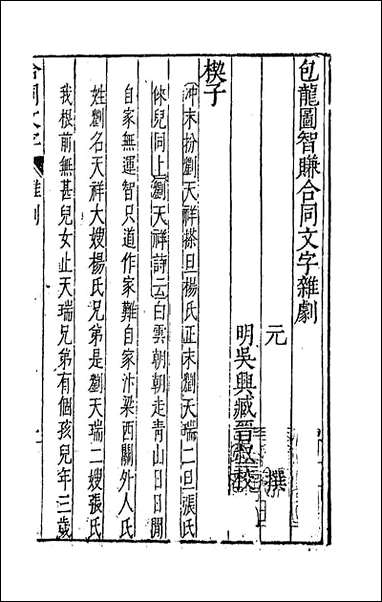 包龍圖智賺合同文字雜劇
元 撰
明吳興臧晉叔校
楔子
沖末扮劉天祥搽旦楊氏正末劉天瑞二旦張氏
俫兒同上劉天祥詩云白雲朝朝走青山日日閒
自家無運智只道作家難自家汴梁西關外人氏
姓劉名天祥大嫂楊氏兄弟是劉天瑞二嫂張氏
我根前無甚兒女止天瑞兄弟有個孩兒年三歲
合同文字 雜劇